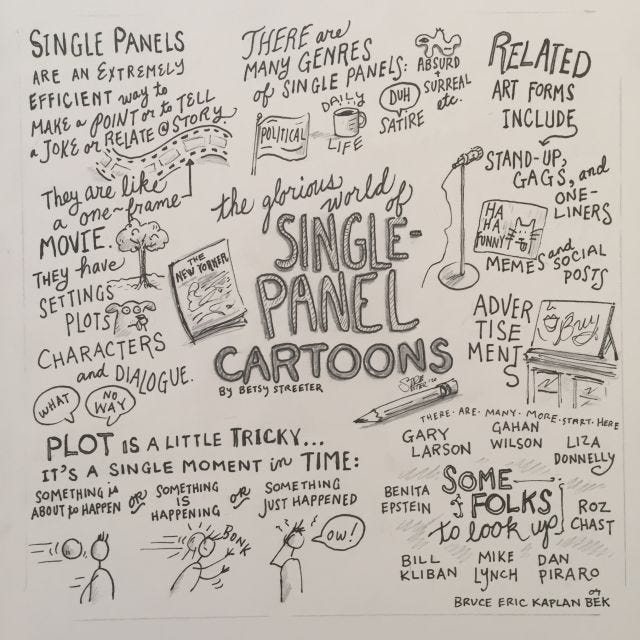 SINGLE PANELS
ARE AN EXTREMELY
EFFICIENT way to
MAKE a POINT or to TELL
a JOKE or RELATE @ STORY.
They are like
a one-frame
MOVIE.
They have
SETTINGS
PLOTS
CHARACTERS
and DIALOGUE.
WHAT
NO
WAY
THERE are
MANY GENRES
of SINGLE PANELS:
POLITICAL
DAILY
LIFE
DUH
SATIRE
ABSURD
+
SURREAL
etc.
RELATED
ART FORMS
INCLUDE
STAND-UP,
GAGS, and
ONE-
LINERS
HA
HA
FUNNY
MEMES and SOCIAL
POSTS
ADVER
TISE
MENT
S
Buy
the glorious
world of
SINGLE-
PANEL
CARTOONS
BY BETSY STREETER
THE
NEW YORKER
PLOT IS A LITTLE TRICKY...
IT'S A SINGLE MOMENT in TIME:
SOMETHING is
ABOUT to HAPPEN
OR
SOMETHING
IS
HAPPENING
OR
SOMETHING
JUST HAPPENED
BONK
OW!
THERE · ARE · MANY · MORE · START · HERE
GARY
LARSON
GAHAN
WILSON
LIZA
DONNELLY
BENITA
EPSTEIN
SOME
FOLKS
to look up
ROZ
CHAST
BILL
KLIBAN
MIKE
LYNCH
DAN
PIRARO
BRUCE ERIC KAPLAN or BEK